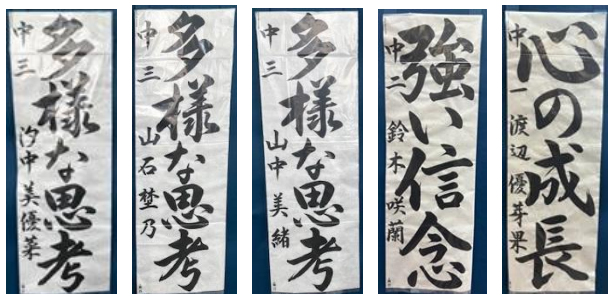 多様な思考
中三 汐中 美優菜
多様な思考
中三 山石 埜乃
多様な思考
中三 山中 美緒
強い信念
中二 鈴木 咲蘭
心の成長
中一 渡辺 優芽果